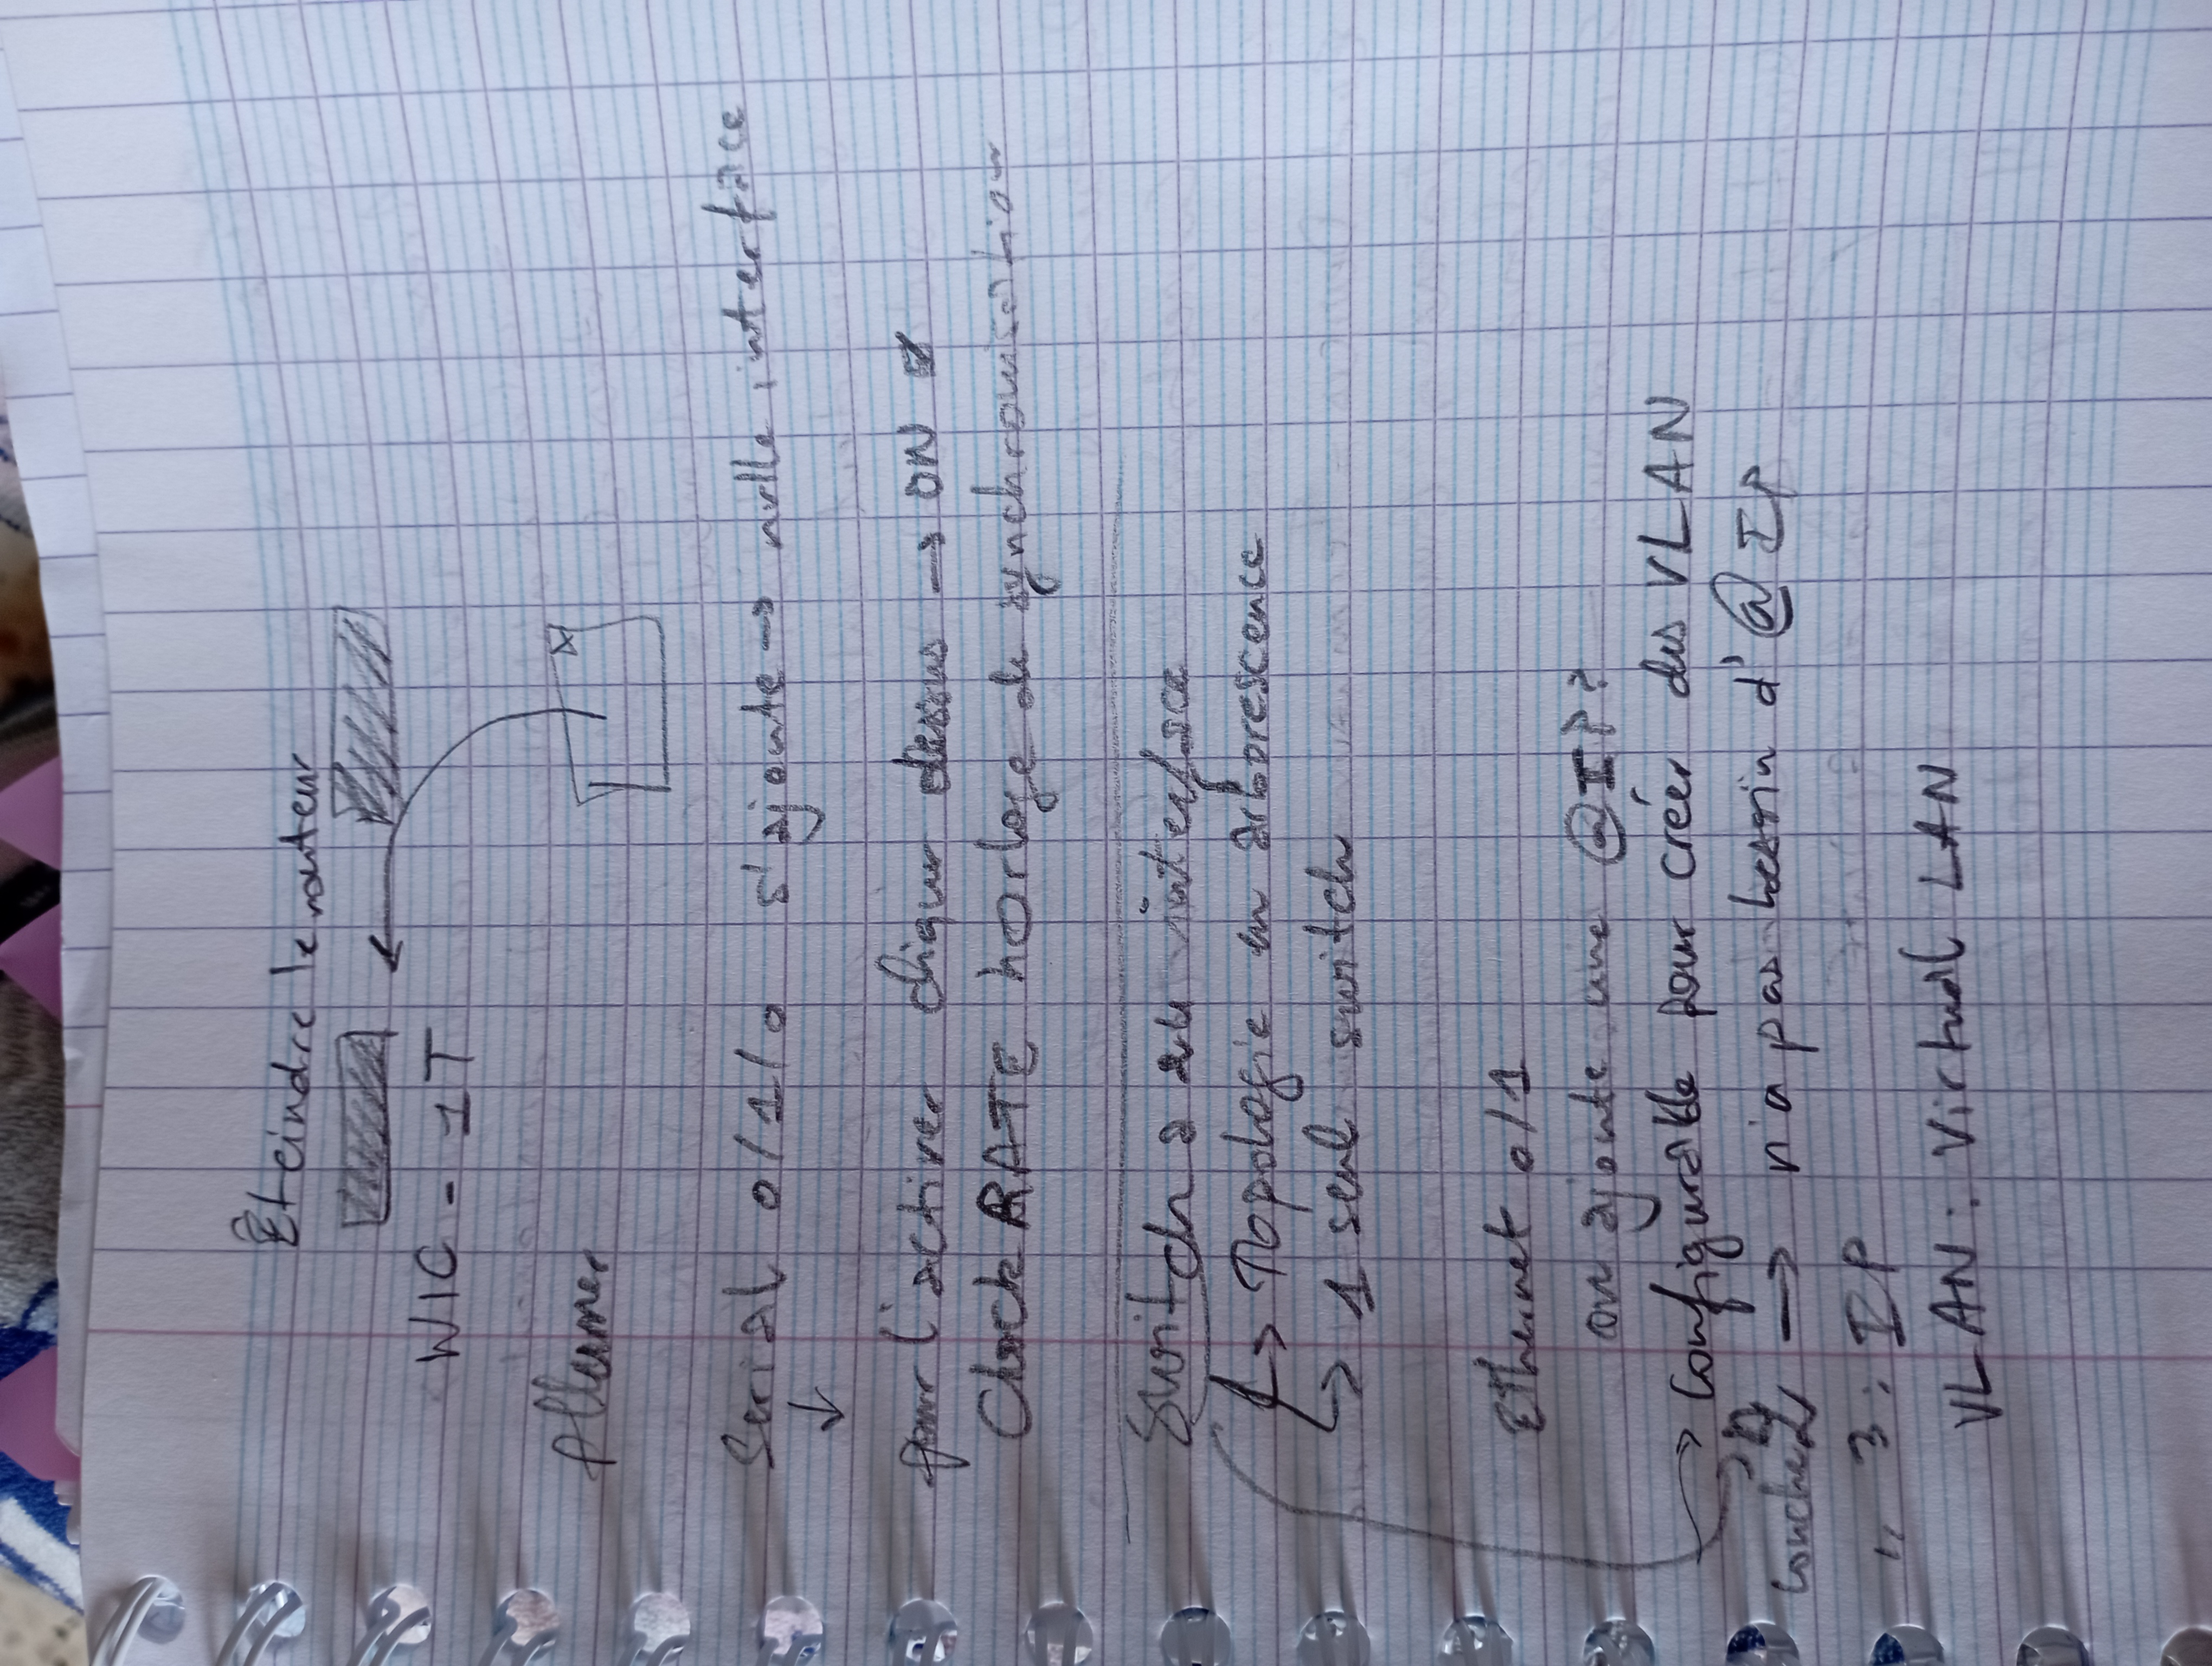 Eteindre le routeur
WIC-1T
Allumer
Serial 0/1/0 s'ajoute → nvlle interface
↓
pour l'activer cliquer dessus → ON
Clock RATE horloge de synchronisation
Switch a une interface
→ Topologie en arborescence
→ 1 seul switch
Ethernet 0/1
on ajoute une @IP?
→ Configurable pour créer des VLAN
Couche 2, → n'a pas besoin d'@IP
" 3 : IP
VLAN : Virtual LAN